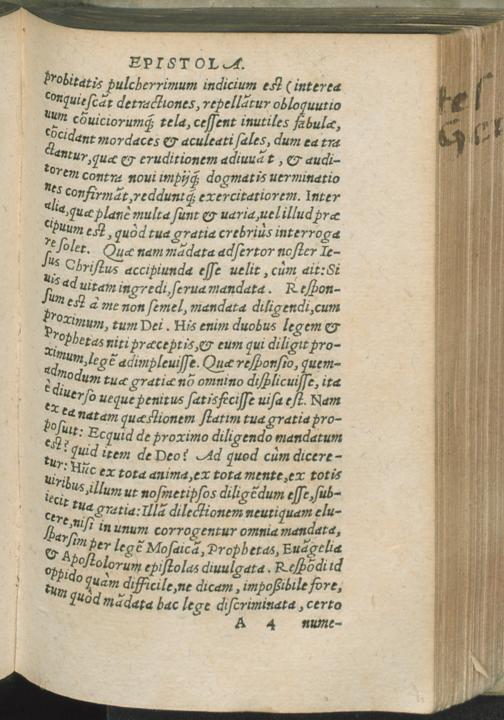 EPISTOLA.
probitatis pulcherrimum indicium est (interea
conquiescāt detractiones, repellātur obloquutio
num cōuiciorumq́; tela, cessent inutiles fabulæ,
cōcidant mordaces & aculeati sales, dum ea tra
ctantur, quæ & eruditionem adiuuāt, & audi-
torem contra noui impijq́; dogmatis uerminatio
nes confirmāt, redduntq́; exercitatiorem. Inter
alia, quæ planè multa sunt & uaria, uel illud præ
cipuum est, quòd tua gratia crebriùs interroga
re solet. Quæ nam mādata adsertor noster Ie-
sus Christus accipiunda esse uelit, cùm ait: Si
uis ad uitam ingredi, serua mandata. Respon-
sum est à me non semel, mandata diligendi, cum
proximum, tum Dei. His enim duobus legem &
Prophetas niti præceptis, & eum qui diligit pro-
ximum, legē adimpleuisse. Quæ responsio, quem-
admodum tuæ gratiæ nō omnino displicuisse, ita
è diuerso ueque penitus satisfecisse uisa est. Nam
ex ea natam quæstionem statim tua gratia pro-
posuit: Ecquid de proximo diligendo mandatum
est? quid item de Deo? Ad quod cùm dicere-
tur: Hūc ex tota anima, ex tota mente, ex totis
uiribus, illum ut nosmetipsos diligēdum esse, sub-
iecit tua gratia: Illā dilectionem neutiquam elu-
cere, nisi in unum corrogentur omnia mandata,
sparsim per legē Mosaicā, Prophetas, Euāgelia
& Apostolorum epistolas diuulgata. Respōdi id
oppido quàm difficile, ne dicam, impoßibile fore,
tum quòd mādata hac lege discriminata, certo
A 4 nume-